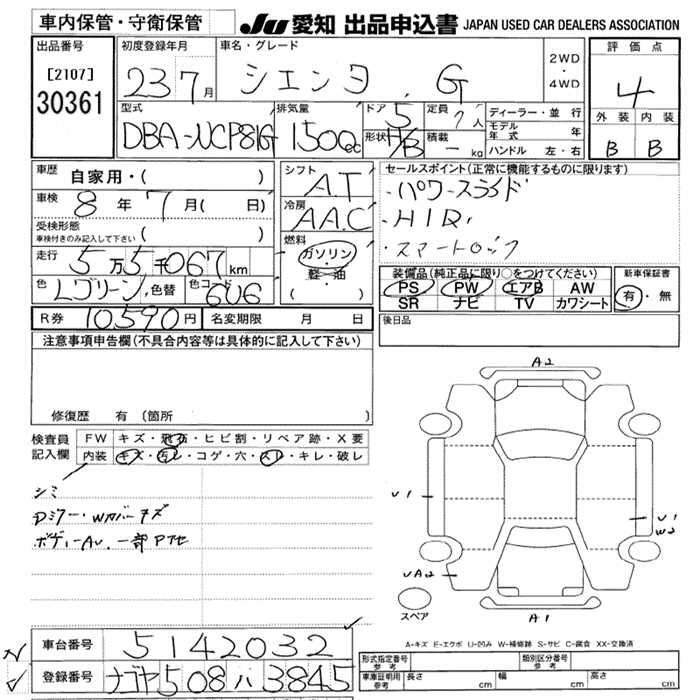 車内保管・守衛保管
JU 愛知 出品申込書 JAPAN USED CAR DEALERS ASSOCIATION
出品番号
[2107]
30361
初度登録年月
23 7月
車名・グレード
シエンタ . G
2WD
・
4WD
評価点
4
外装 内装
B B
型式
DBA-NCP81G
排気量
1500cc
ドア 5
形状 H/B
定員 7人
積載 - kg
ディーラー・並行
モデル年式 年
ハンドル 左・右
車歴
自家用・( )
車検 8年 7月( 日)
受検形態
車検付きのみ記入して下さい ( )
走行 5万5千067km
色 Lグリーン / 色替
色コード 6U6
シフト
A.T
冷房
AAC
燃料
ガソリン
軽・油
( )
セールスポイント(正常に機能するものに限ります)
・パワースライド
・HID,
・スマートロック
装備品(純正品に限り○をつけてください)
PS PW エアB AW
SR ナビ TV カワシート
新車保証書
有・無
R券 10,590円 名変期限 月 日
後日品
注意事項申告欄(不具合内容等は具体的に記入して下さい)
修復歴 有(箇所
検査員
記入欄
FW キズ・飛石・ヒビ割・リペア跡・X要
内装 キズ・汚レ・コゲ・穴・スレ・キレ・破レ
シミ
Dミラー・Wカバーキズ
ボディーAU. 一部Pハゲ
A2
U1
U1
W2
UA2
スペア
A1
A-キズ E-エクボ U-凹み W-補修跡 S-サビ C-腐食 XX-交換済
車台番号 5142032
登録番号 ナゴヤ508 ハ 3845
形式指定番号
参考
類別区分番号
参考
車庫証明用
参考
長さ cm 幅 cm 高さ cm